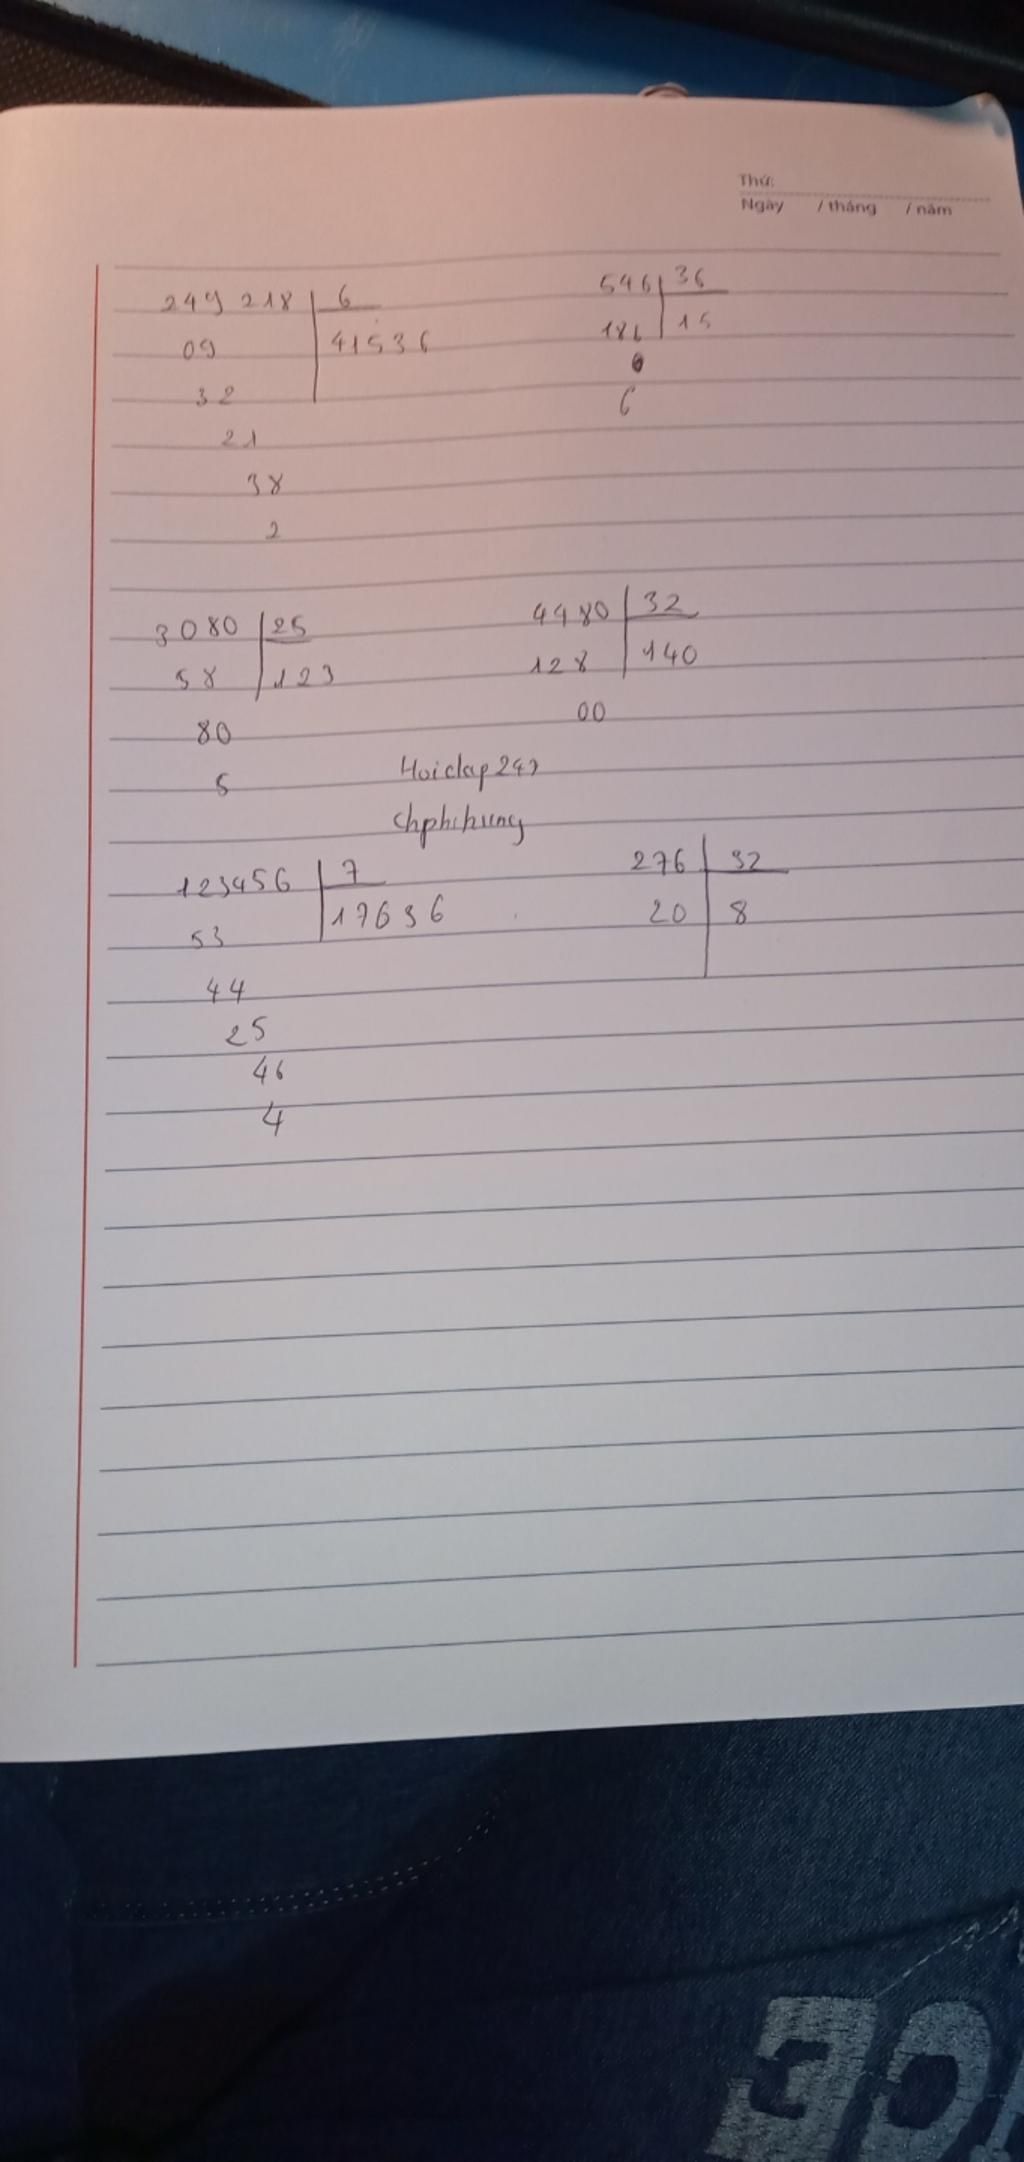 Thứ:
Ngày / tháng / năm
249 218 6
09 41536
32
21
38
2
546 36
186 15
6
3080 25
58 123
80
5
4480 32
128 140
00
Hoidap247
Chphihung
123456 7
53 17636
44
25
46
4
276 32
20 8